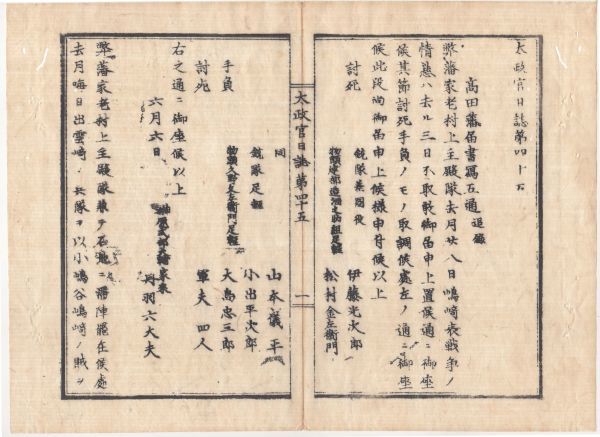 太政官日誌第四十五
高田藩届書寫五通 追録
弊藩家老村上主殿隊去月廿八日嶋崎表戦争ノ
情態ハ去ル三日不取敢御届申上置候通ニ御座
候其節討死手負ノモノ取調候處左ノ通ニ御座
候此段尚御届申上候様申付候以上
銃隊
討死 伊藤光次郎
松村金左衛門
太政官日誌 第四十五
一
同 銃隊足軽
山本儀平
手負 小出平次郎
足軽
大島忠三郎
討死 軍夫 四人
右之通ニ御座候以上
六月六日
家来
丹羽六大夫
弊藩家老村上主殿隊兼テ石地ニ滞陣罷在候處
去月晦日出雲崎ノ兵隊ヲ以小嶋谷嶋崎ノ賊ヲ